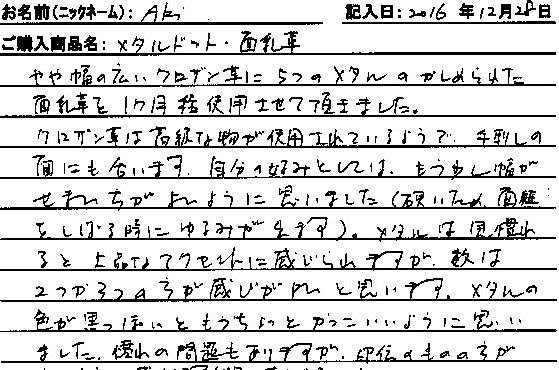 お名前(ニックネーム): Aki 記入日: 2016 年12月28日
ご購入商品名: メタルドット・面乳革
やや幅の広いクロザン革に5つのメタルのかしめられた
面乳革を1ヶ月程使用させて頂きました。
クロザン革は高級な物が使用されているようで、手刺しの
面にも合います。自分の好みとしては、もう少し幅が
せまい方がよいように思いました(硬いため、面紐
をしばる時にゆるみが生ます)。メタルは見慣れ
ると上品なアクセントに感じられますが、数は
2つか3つの方が感じが良いと思います。メタルの
色が黒っぽいともうちょっとかっこいいように思い
ました。慣れの問題もありますが、印伝のものの方が